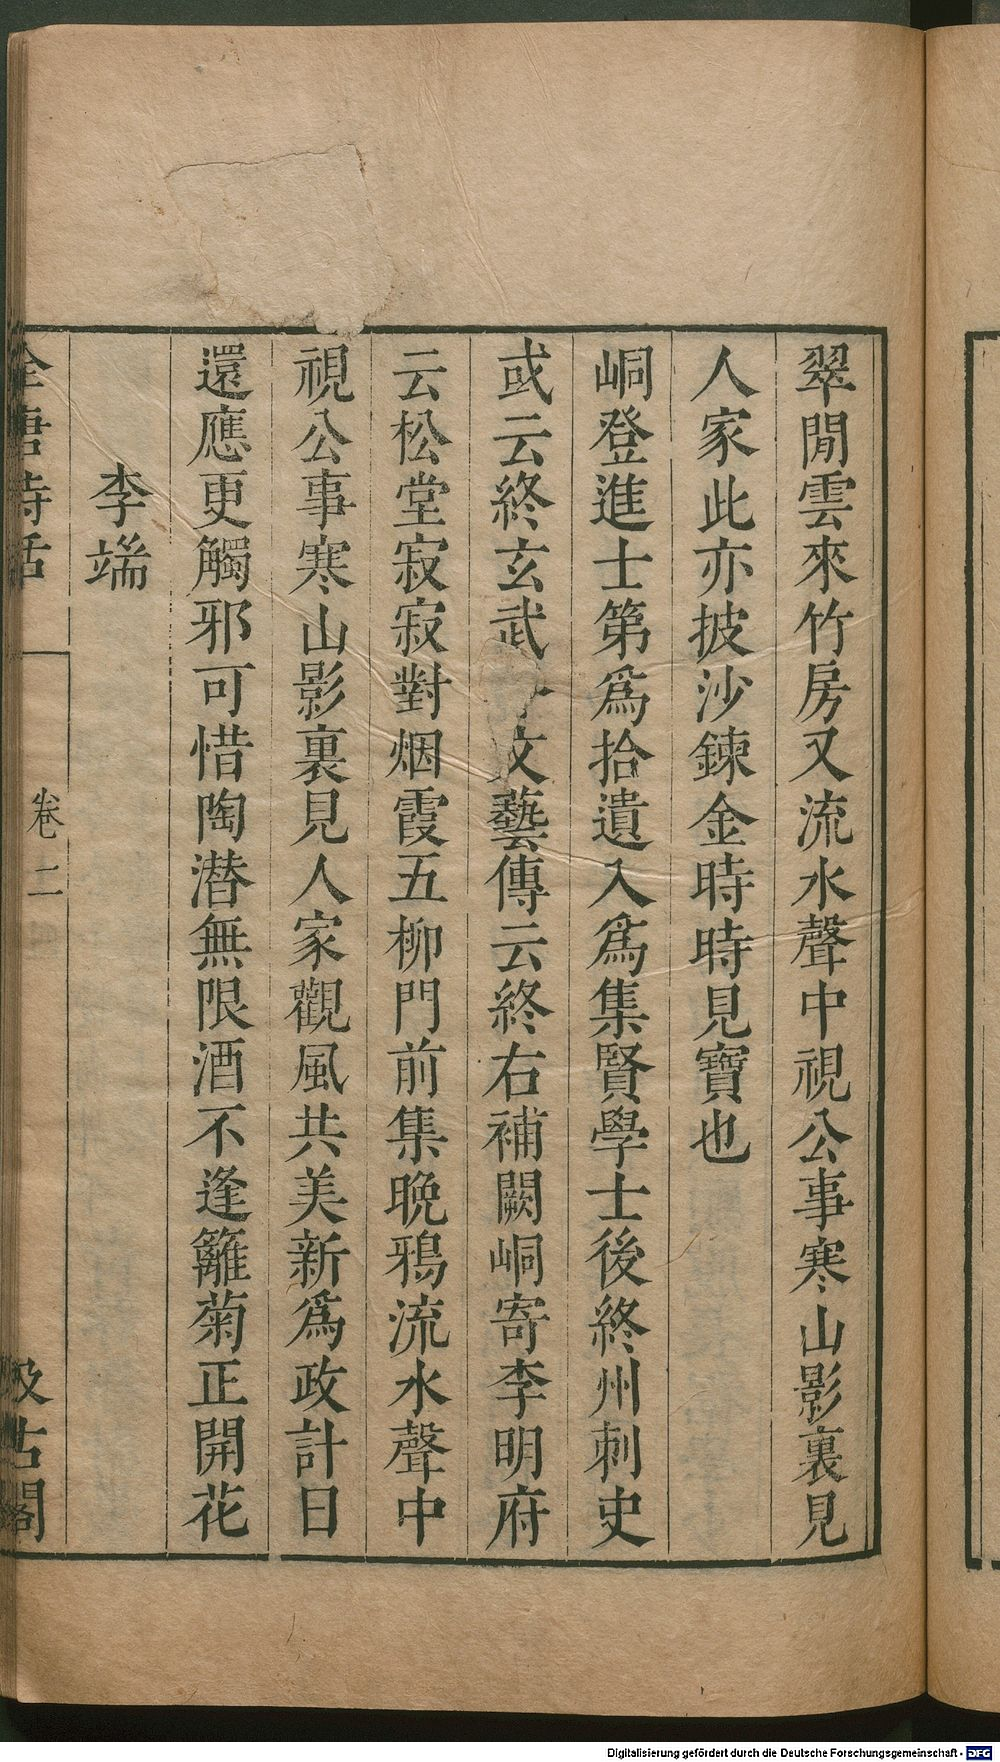 翠閒雲來竹房又流水聲中視公事寒山影裏見
人家此亦披沙鍊金時時見寶也
峒登進士第爲拾遺入爲集賢學士後終州刺史
或云終玄武
文藝傳云終右補闕峒寄李明府
云松堂寂寂對烟霞五柳門前集晚鴉流水聲中
視公事寒山影裏見人家觀風共美新爲政計日
還應更觸邪可惜陶潛無限酒不逢籬菊正開花
李端
全唐詩話
卷二
汲古閣
Digitalisierung gefördert durch die Deutsche Forschungsgemeinschaft - DFG